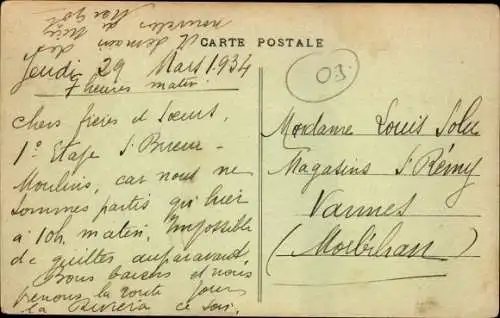 des
A demain des
nouvelles
Margot
CARTE POSTALE
Jeudi 29 Mars 1934
7 heures matin
03
Chers frères et Soeurs,
1° Etape S. Brieuc -
Moulins, car nous ne
sommes partis qu'hier
à 10h matin. Impossible
de quitter auparavant.
Bons baisers et nous
prenons la route pour
la Riviera ce soir.
Madame Louis Soleu
Magasins S. Rémy
Vannes
(Morbihan)